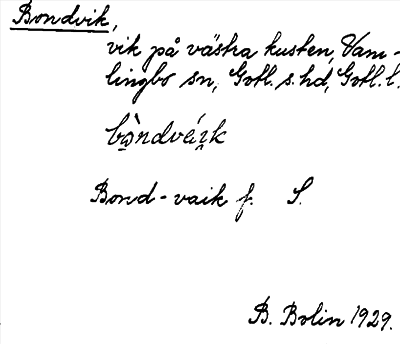 Bondvik,
vik på västra kusten, Vam-
lingbo sn, Gotl. s. hd, Gotl. l.
bòndvéi̯k
Bond-vaik f. S.
B. Bolin 1929.